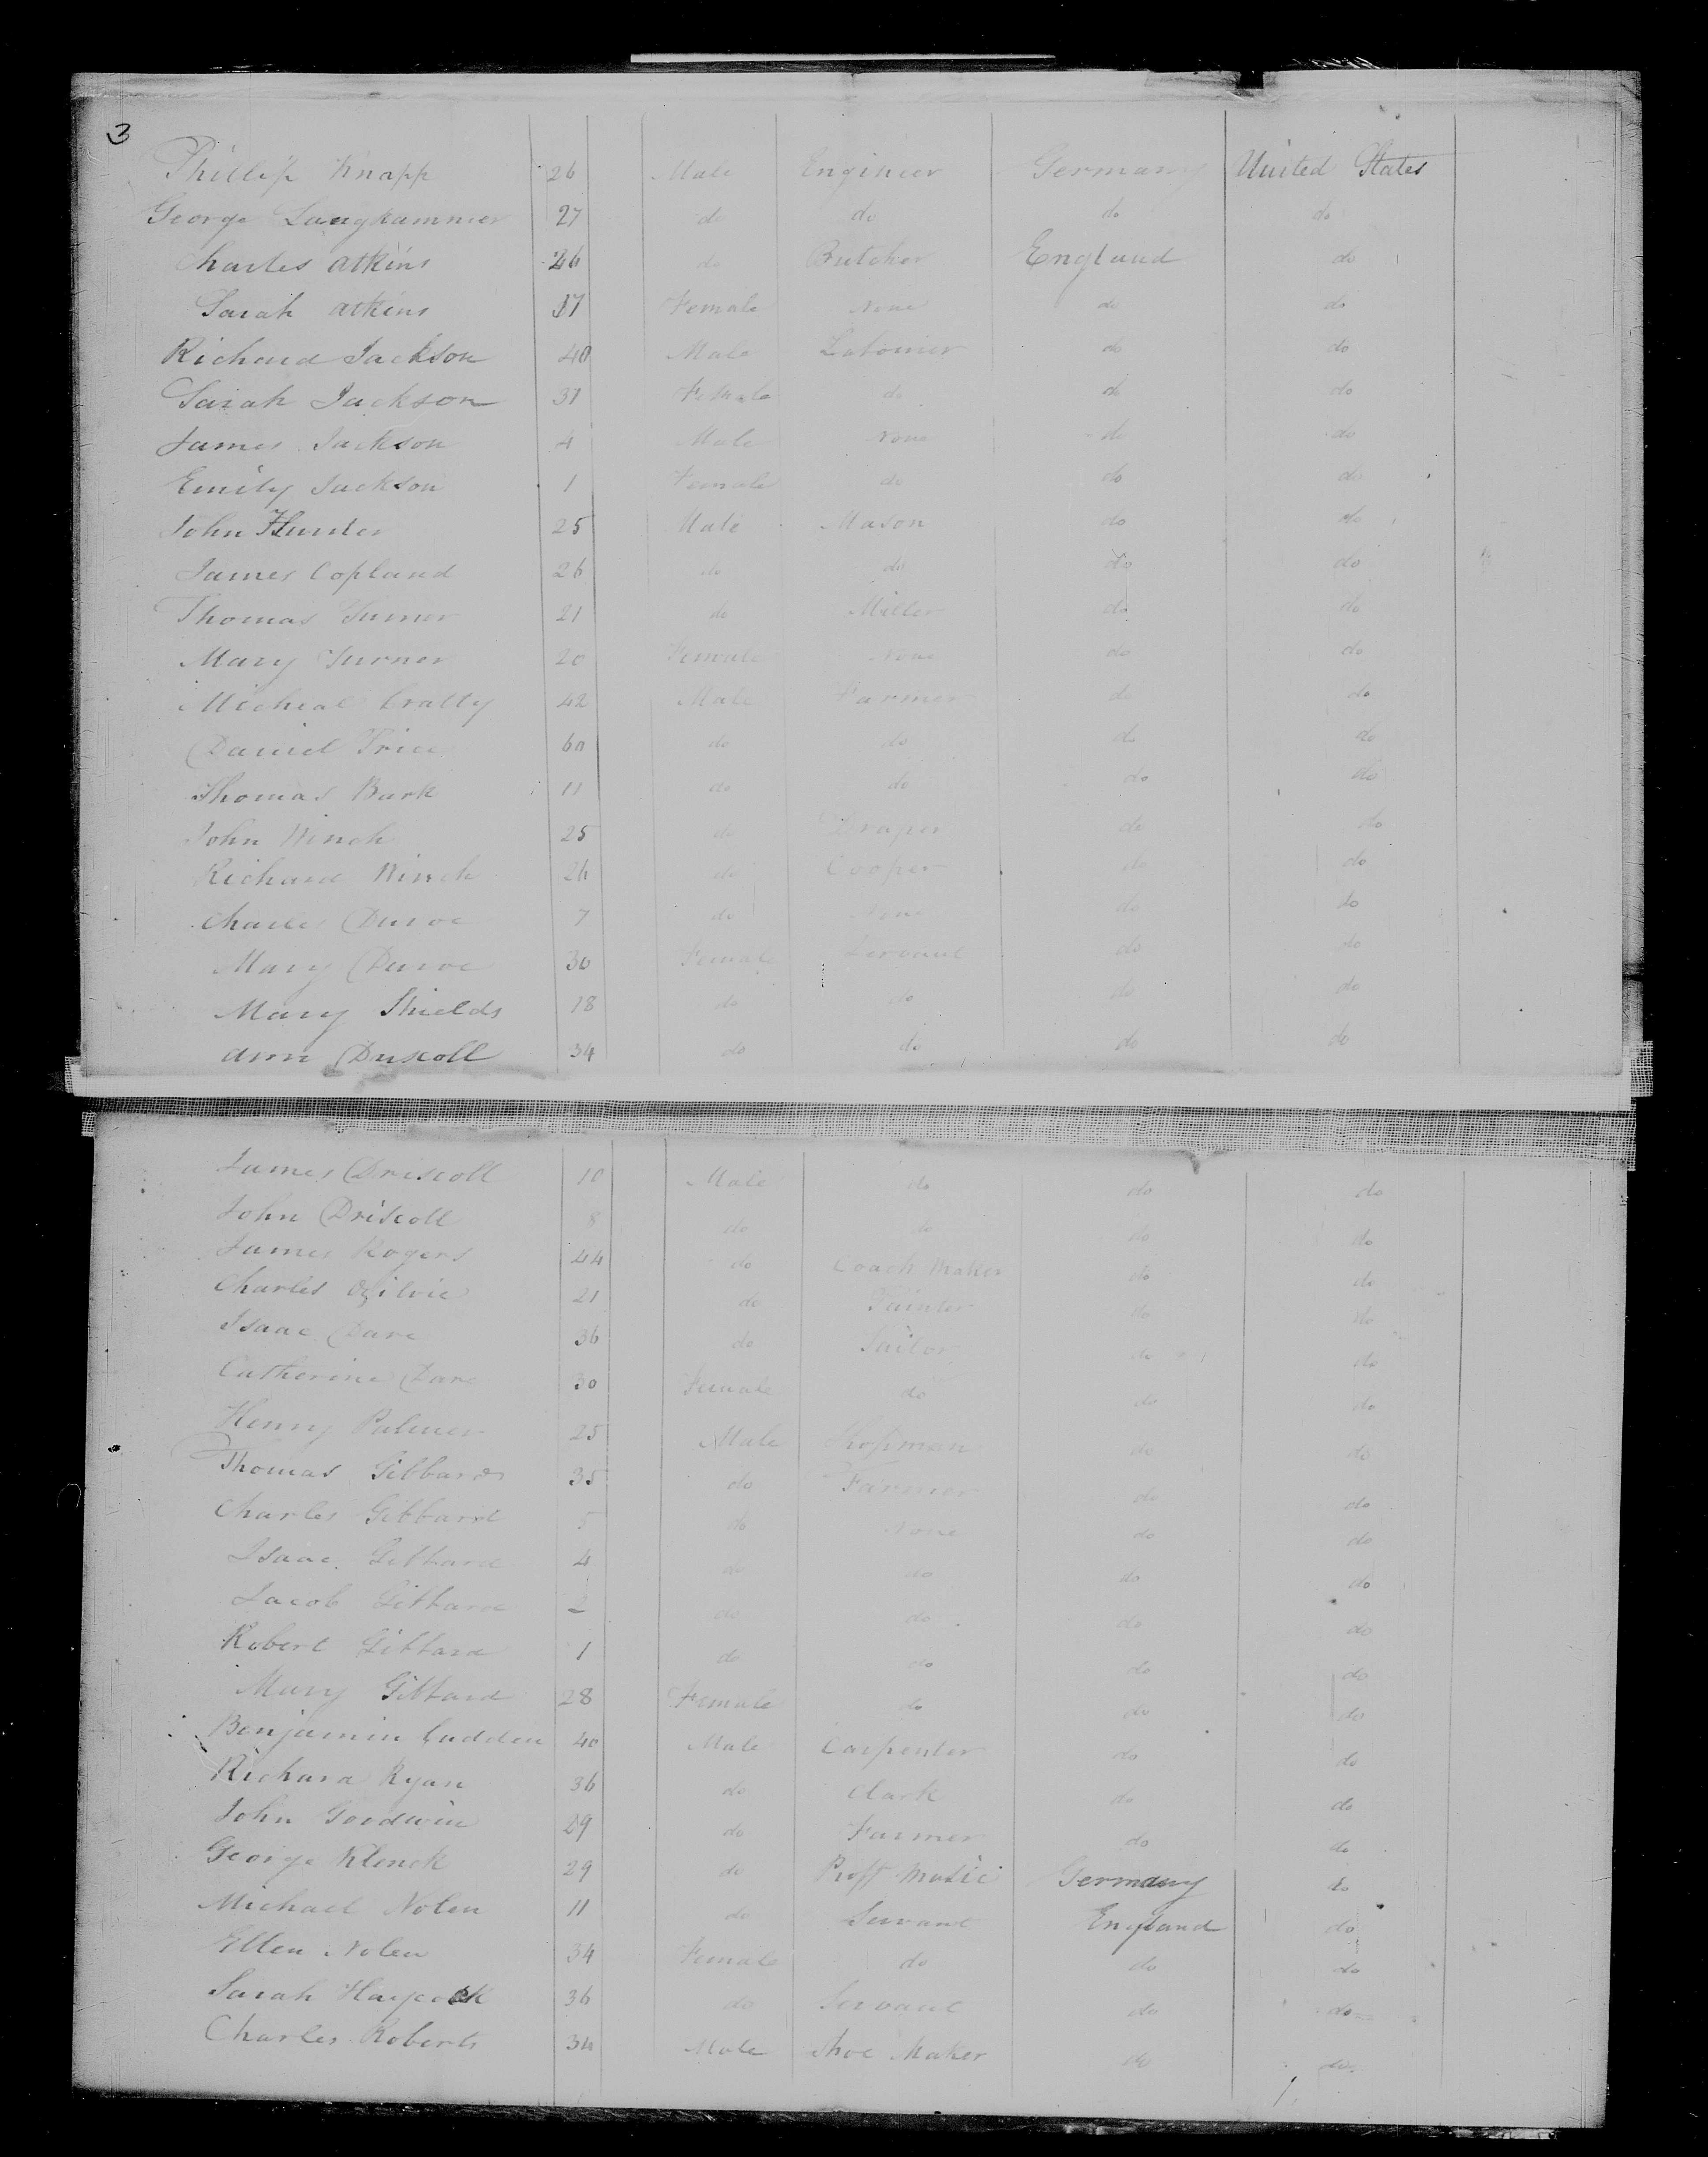 3
Phillip Knapp 26 Male Engineer Germany United States
George Langhammer 27 do do do do
Charles Atkins 26 do Butcher England do
Sarah Atkins 37 Female None do do
Richard Jackson 40 Male Labourer do do
Sarah Jackson 37 Female do do do
James Jackson 4 Male None do do
Emily Jackson 1 Female do do do
John Hunter 25 Male Mason do do
James Copland 26 do do do do
Thomas Turner 21 do Miller do do
Mary Turner 20 Female None do do
Micheal Cratty 42 Male Farmer do do
Daniel Price 60 do do do do
Thomas Burk 11 do do do do
John Winch 25 do Draper do do
Richard Winch 26 do Cooper do do
Charles 7 do None do do
Mary 30 Female Servant do do
Mary Shields 18 do do do do
Ann Driscoll 34 do do do do
James Driscoll 10 Male do do do
John Driscoll 8 do do do do
James Rogers 44 do Coach Maker do do
Charles Ogilvie 21 do Painter do do
Isaac Dare 36 do Sailor do do
Catherine Dare 30 Female do do do
Henry Palmer 25 Male Shopman do do
Thomas Gibbard 35 do Farmer do do
Charles Gibbard 5 do None do do
Isaac Gibbard 4 do do do do
Jacob Gibbard 2 do do do do
Robert Gibbard 1 do do do do
Mary Gibbard 28 Female do do do
Benjamin Cudden 40 Male Carpenter do do
Richard Ryan 36 do Clark do do
John Goodwin 29 do Farmer do do
George Klenck 29 do Proff Music Germany do
Michael Nolen 11 do Servant England do
Ellen Nolen 34 Female do do do
Sarah Haycock 36 do Servant do do
Charles Roberts 34 Male Shoe Maker do do